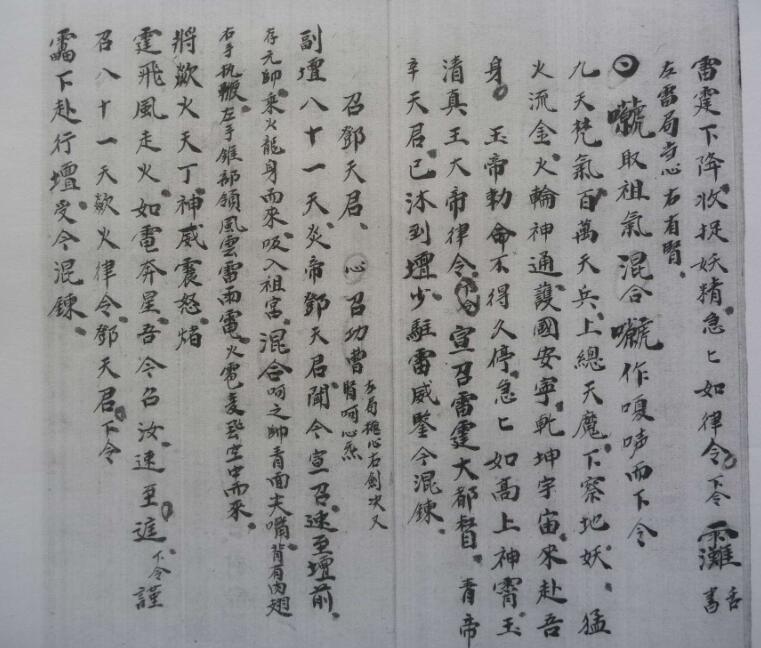 雷霆下降收捉妖精急匕如律令下令
左雷局寺心右有腎
取祖氣混合作嗄声而下令
九天梵氣百萬天兵上總天魔下察地妖猛
火流金火輪神通護國安寧乾坤宇宙來赴吾
身玉帝勅命不得久停急匕如高上神霄玉
清真王大帝律令下令宣召雷霆大都督青帝
辛天君已沐到壇少駐雷威鑒令混鍊
召鄧天君心召功曹
左局捻心右劍次又
腎呵心炁
副壇八十一天炎帝鄧天君聞令宣召速至壇前
存元帥乘火龍身而來吸入祖宮混合呵之帥青面尖嘴背有肉翅
右手执鞭左手錐部領風雲雷雨電火雹空中而來
將歘火天丁神威震怒
霆飛風走火如電奔星吾令召汝速至進下令謹
召八十一天歘火律令鄧天君下令
下赴行壇受令混鍊